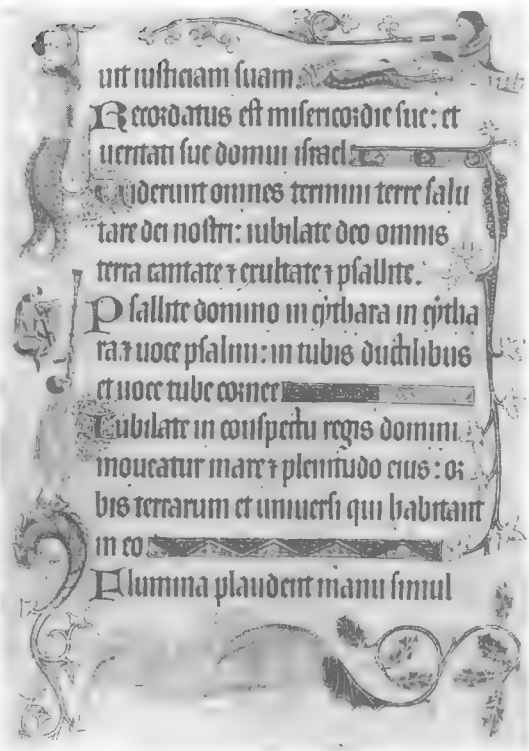 uit iusticiam suam.
Recordatus est misericordie sue: et
ueritati sue domui israel.
Viderunt omnes termini terre salu
tare dei nostri: iubilate deo omnis
terra cantate ⁊ exultate ⁊ psallite.
Psallite domino in cythara in cytha
ra ⁊ uoce psalmi: in tubis ductilibus
et uoce tube cornee
Iubilate in conspectu regis domini
moueatur mare ⁊ plenitudo eius: or
bis terrarum et uniuersi qui habitant
in eo
Flumina plaudent manu simul